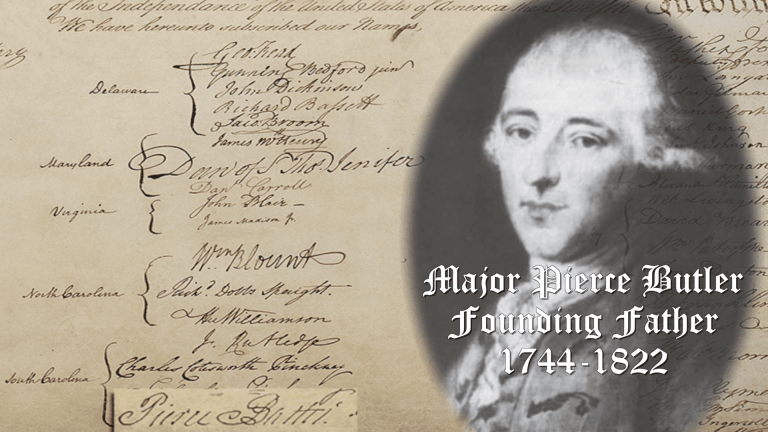 of the Independance of the United States of America the
We have hereunto subscribed our Names,
Delaware
Geo: Read
Gunning Bedford jun
John Dickinson
Richard Bassett
Jaco: Broom
Maryland
James McHenry
Dan of St Thos. Jenifer
Danl Carroll
Virginia
John Blair —
James Madison Jr.
North Carolina
Wm Blount
Richd. Dobbs Spaight.
Hu Williamson
South Carolina
J. Rutledge
Charles Cotesworth Pinckney
Pierce Butler.
Major Pierce Butler
Founding Father
1744-1822